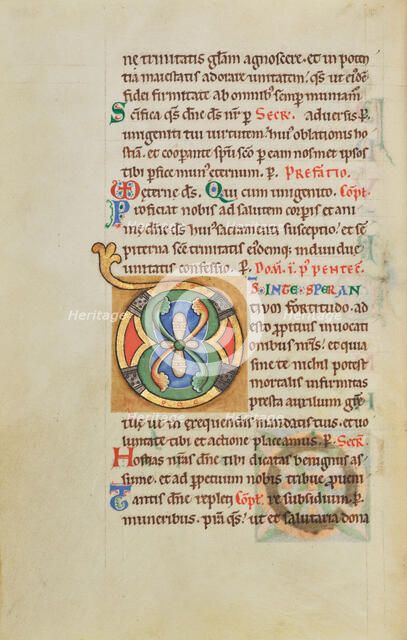 nę trinitatis gl̃am agnoscere. et in poten
tia maiestatis adorare unitatem. qs̃ ut eiusdẽ
fidei firmitate ab omnibus semper muniam̃
Sc̃ifica qs̃ dñe ds̃ nr̃ p̲ Secr̃. aduersis. p̲.
unigeniti tui uirtutem hui᷒ oblationis ho
stiam. et cooperante sp̃u sc̃o p̲ eam nosmet ipsos
tibi p̲fice mun᷒ eternum. p̲. Prefatio.
Eterne ds̃. Qui cum unigenito. Cõpl̃.
Proficiat nobis ad salutem corp̲is et ani
me dñe ds̃ hui᷒ sacramenti susceptio. et sem
piterna sc̃e trinitatis eidemq; indiuiduę
unitatis confessio. p̲. Dom̃. i. p᷒ pentec̃.
DS INTE SPERAN
tium fortitudo. ad
esto p̲pitius inuocati
onibus nr̃is. et quia
sine te nichil potest
mortalis infirmitas
presta auxilium grę
tuę. ut in exequendis mandatis tuis. et uo
luntate tibi et actione placeamus. p̲. Secr̃.
Hostias nr̃as dñe tibi dicatas benignus as
sume. et ad p̲petuum nobis tribue p̲uenire
Tantis dñe repleti Cõpl̃. re subsidium. p̲.
muneribus. p̃ta qs̃. ut et salutaria dona
Heritage Images
Heritage Images
Heritage Images